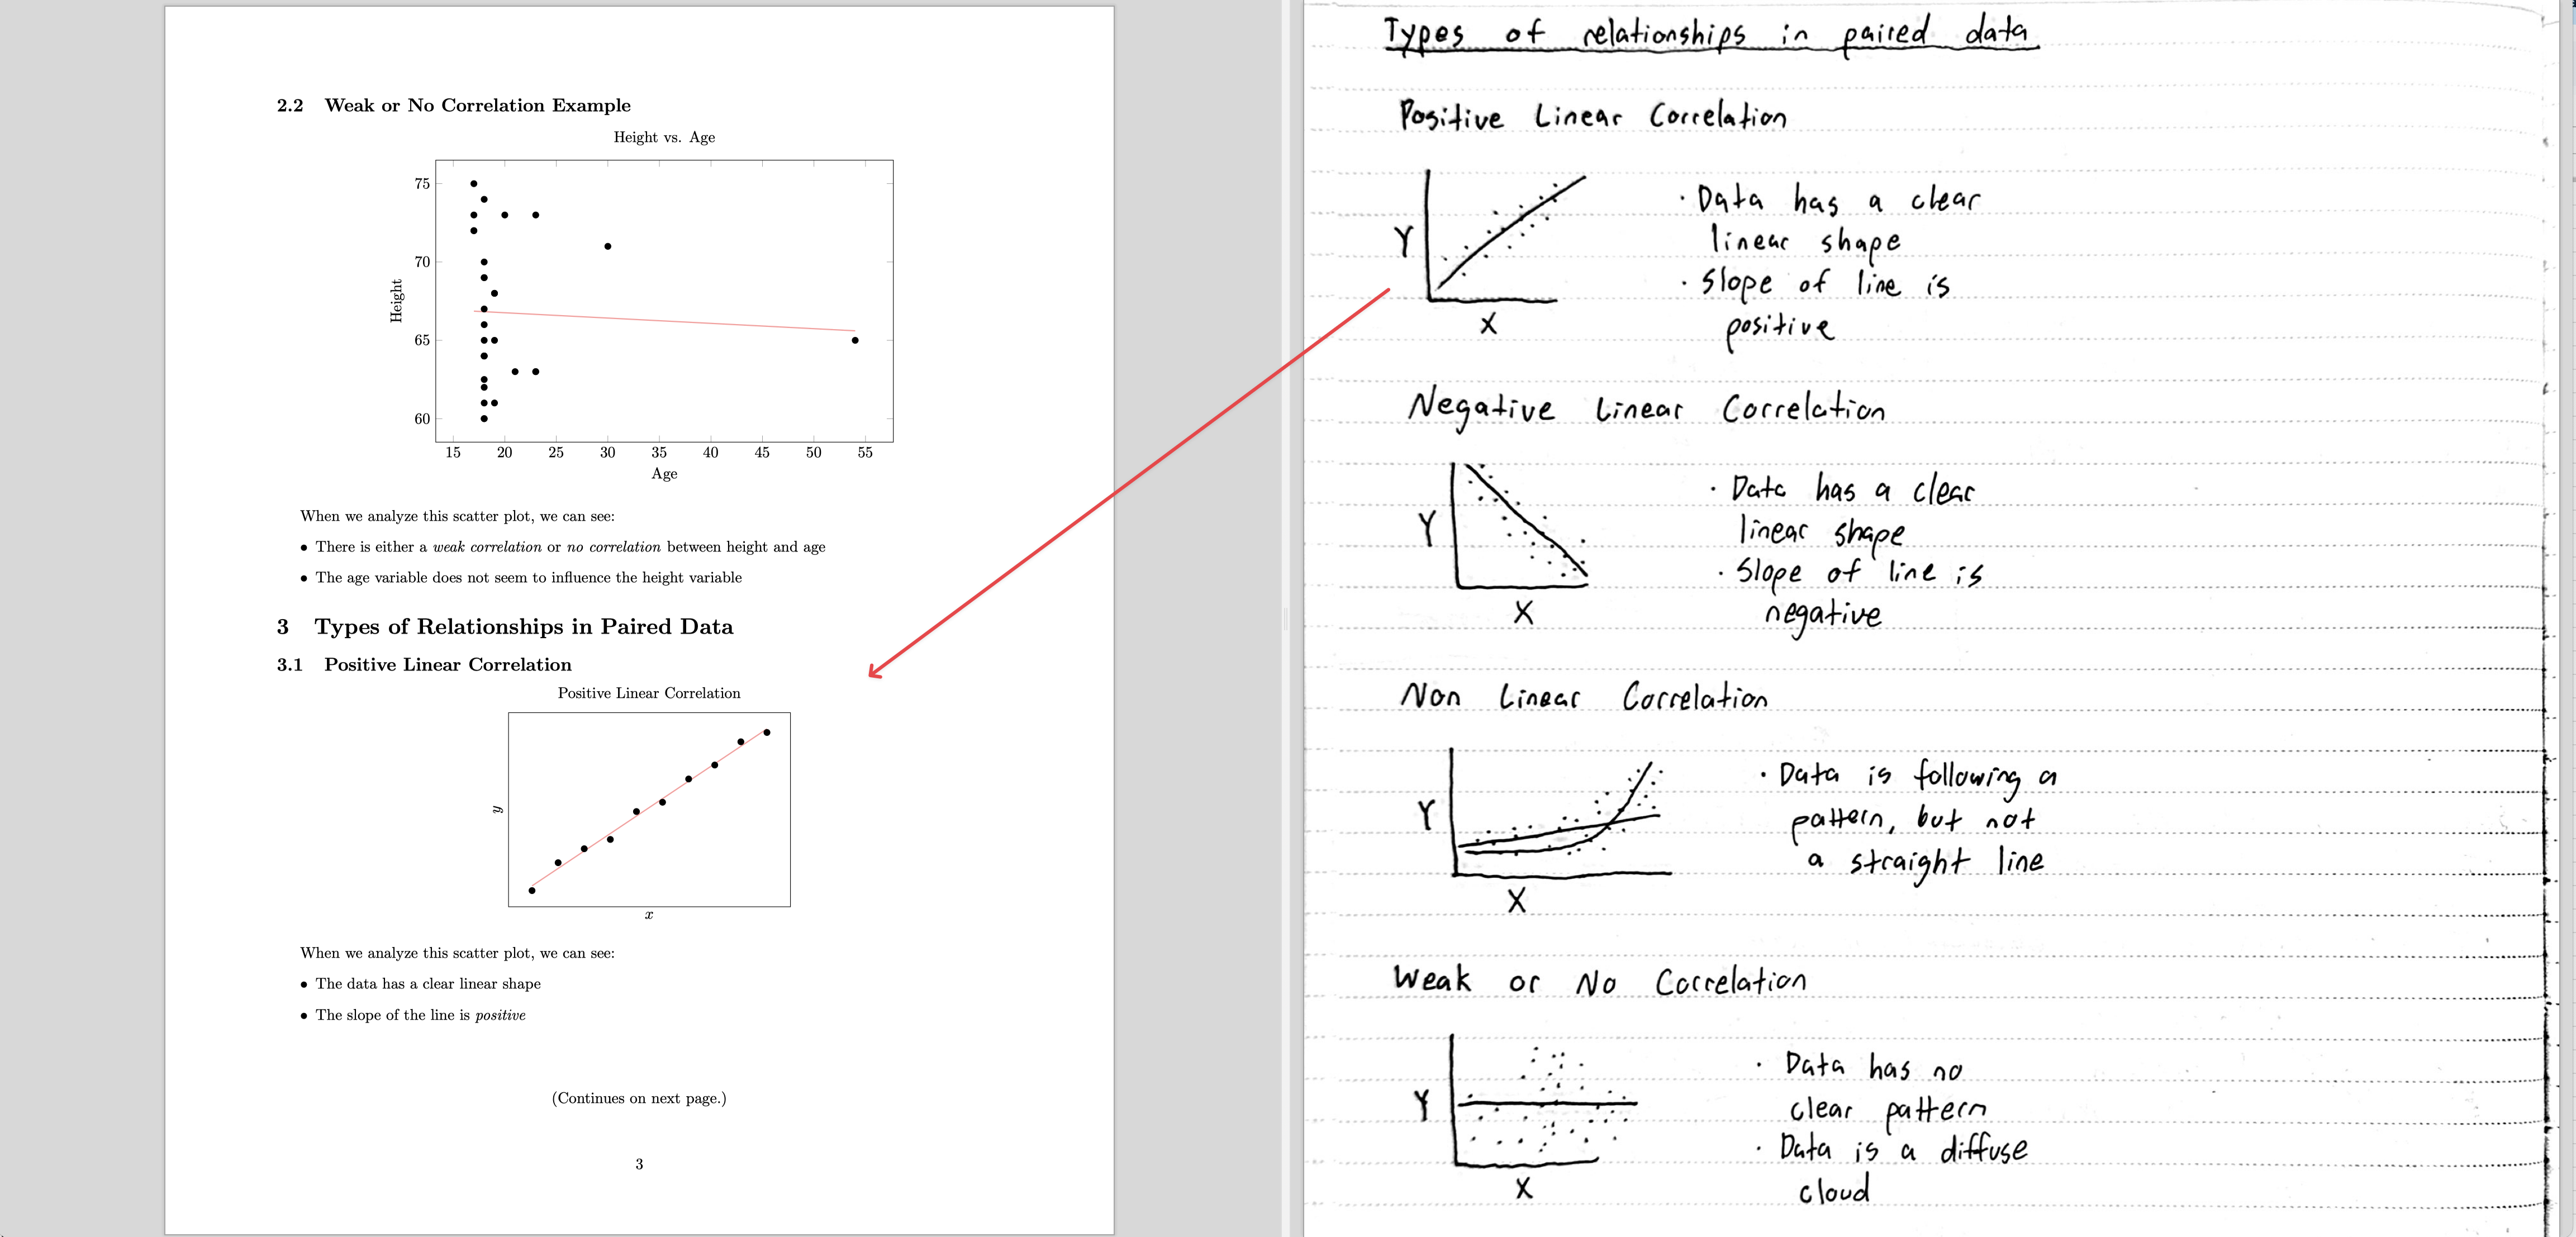 2.2 Weak or No Correlation Example
Height vs. Age
75
70
65
60
Height
15 20 25 30 35 40 45 50 55
Age
When we analyze this scatter plot, we can see:
• There is either a weak correlation or no correlation between height and age
• The age variable does not seem to influence the height variable
3 Types of Relationships in Paired Data
3.1 Positive Linear Correlation
Positive Linear Correlation
y
x
When we analyze this scatter plot, we can see:
• The data has a clear linear shape
• The slope of the line is positive
(Continues on next page.)
3
Types of relationships in paired data
Positive Linear Correlation
Y
X
· Data has a clear
linear shape
· Slope of line is
positive
Negative Linear Correlation
Y
X
· Data has a clear
linear shape
· Slope of line is
negative
Non Linear Correlation
Y
X
· Data is following a
pattern, but not
a straight line
Weak or No Correlation
Y
X
· Data has no
clear pattern
· Data is a diffuse
cloud